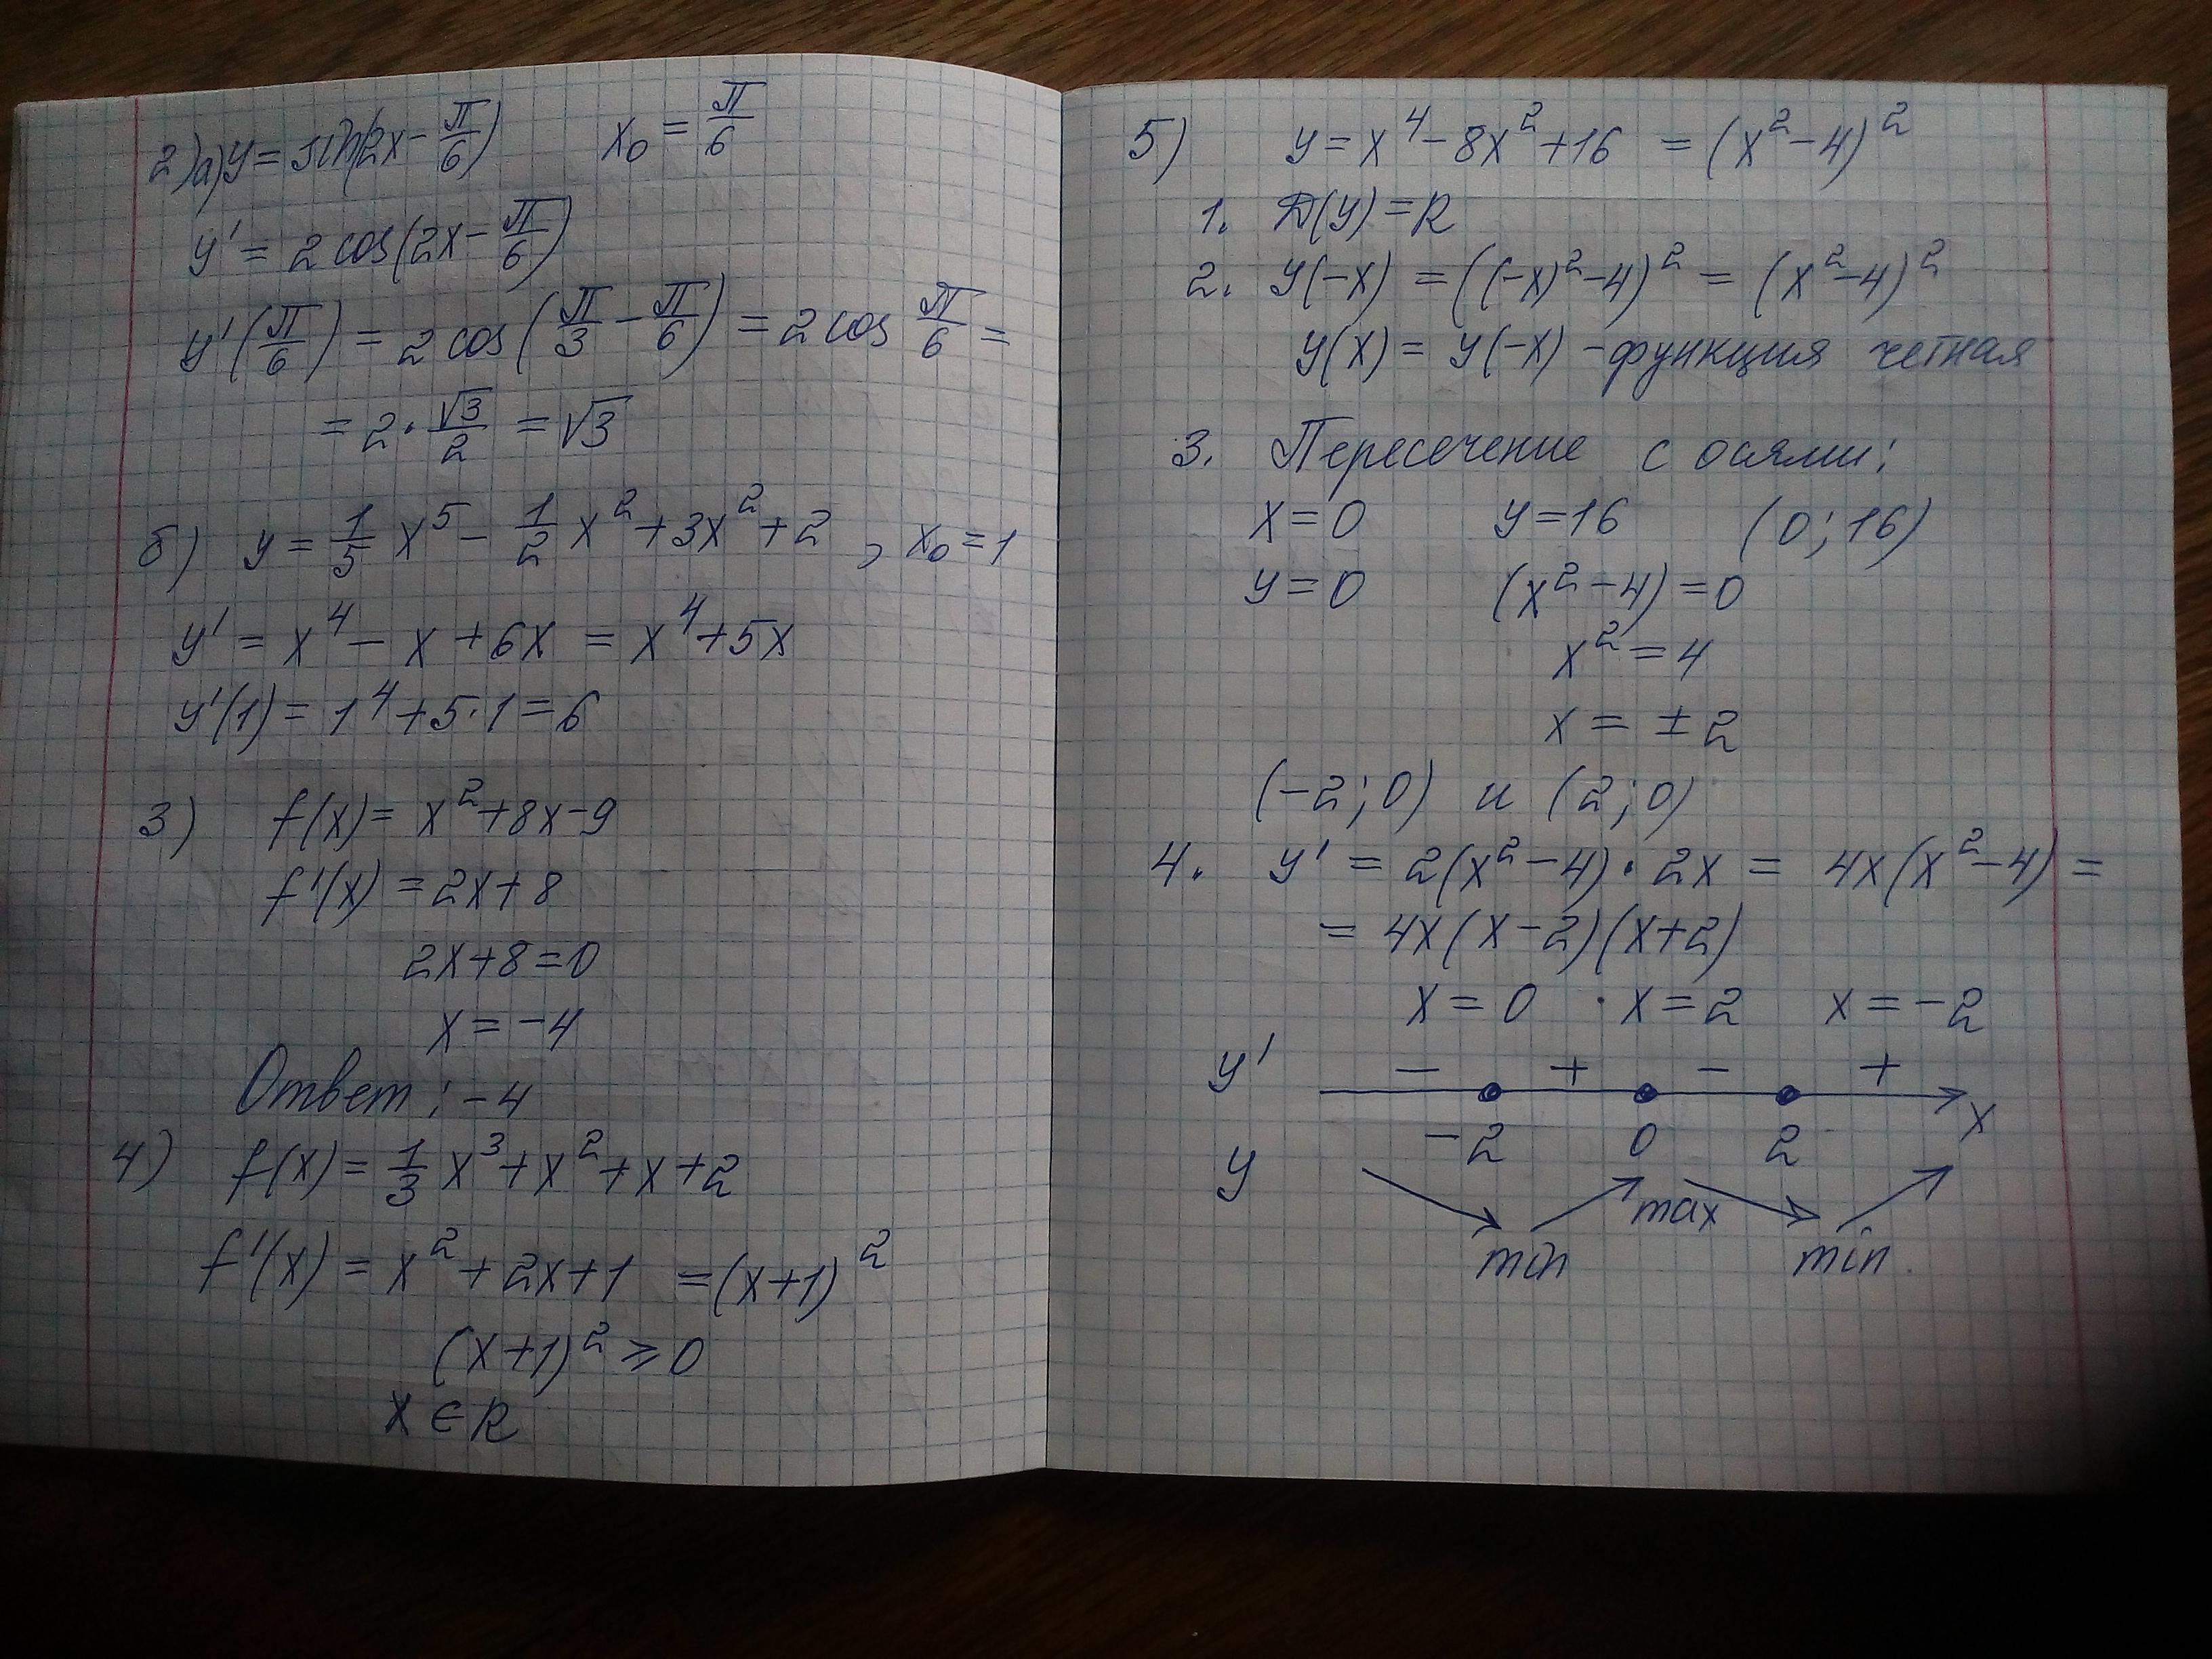 2) а) y = sin(2x - π/6)   x₀ = π/6
y' = 2 cos(2x - π/6)
y'(π/6) = 2 cos(π/3 - π/6) = 2 cos π/6 =
= 2 · √3/2 = √3
б) y = 1/5 x⁵ - 1/2 x² + 3x² + 2 , x₀ = 1
y' = x⁴ - x + 6x = x⁴ + 5x
y'(1) = 1⁴ + 5·1 = 6
3) f(x) = x² + 8x - 9
f'(x) = 2x + 8
2x + 8 = 0
x = -4
Ответ: -4
4) f(x) = 1/3 x³ + x² + x + 2
f'(x) = x² + 2x + 1 = (x+1)²
(x+1)² ⩾ 0
x ∈ R
5) y = x⁴ - 8x² + 16 = (x² - 4)²
1. D(y) = R
2. y(-x) = ((-x)² - 4)² = (x² - 4)²
y(x) = y(-x) - функция четная
3. Пересечение с осями:
x = 0   y = 16   (0; 16)
y = 0   (x² - 4) = 0
x² = 4
x = ± 2
(-2; 0) и (2; 0)
4. y' = 2(x² - 4) · 2x = 4x(x² - 4) =
= 4x(x - 2)(x + 2)
x = 0 · x = 2   x = -2
y' - + - +
-2 0 2 x
y
max
min min